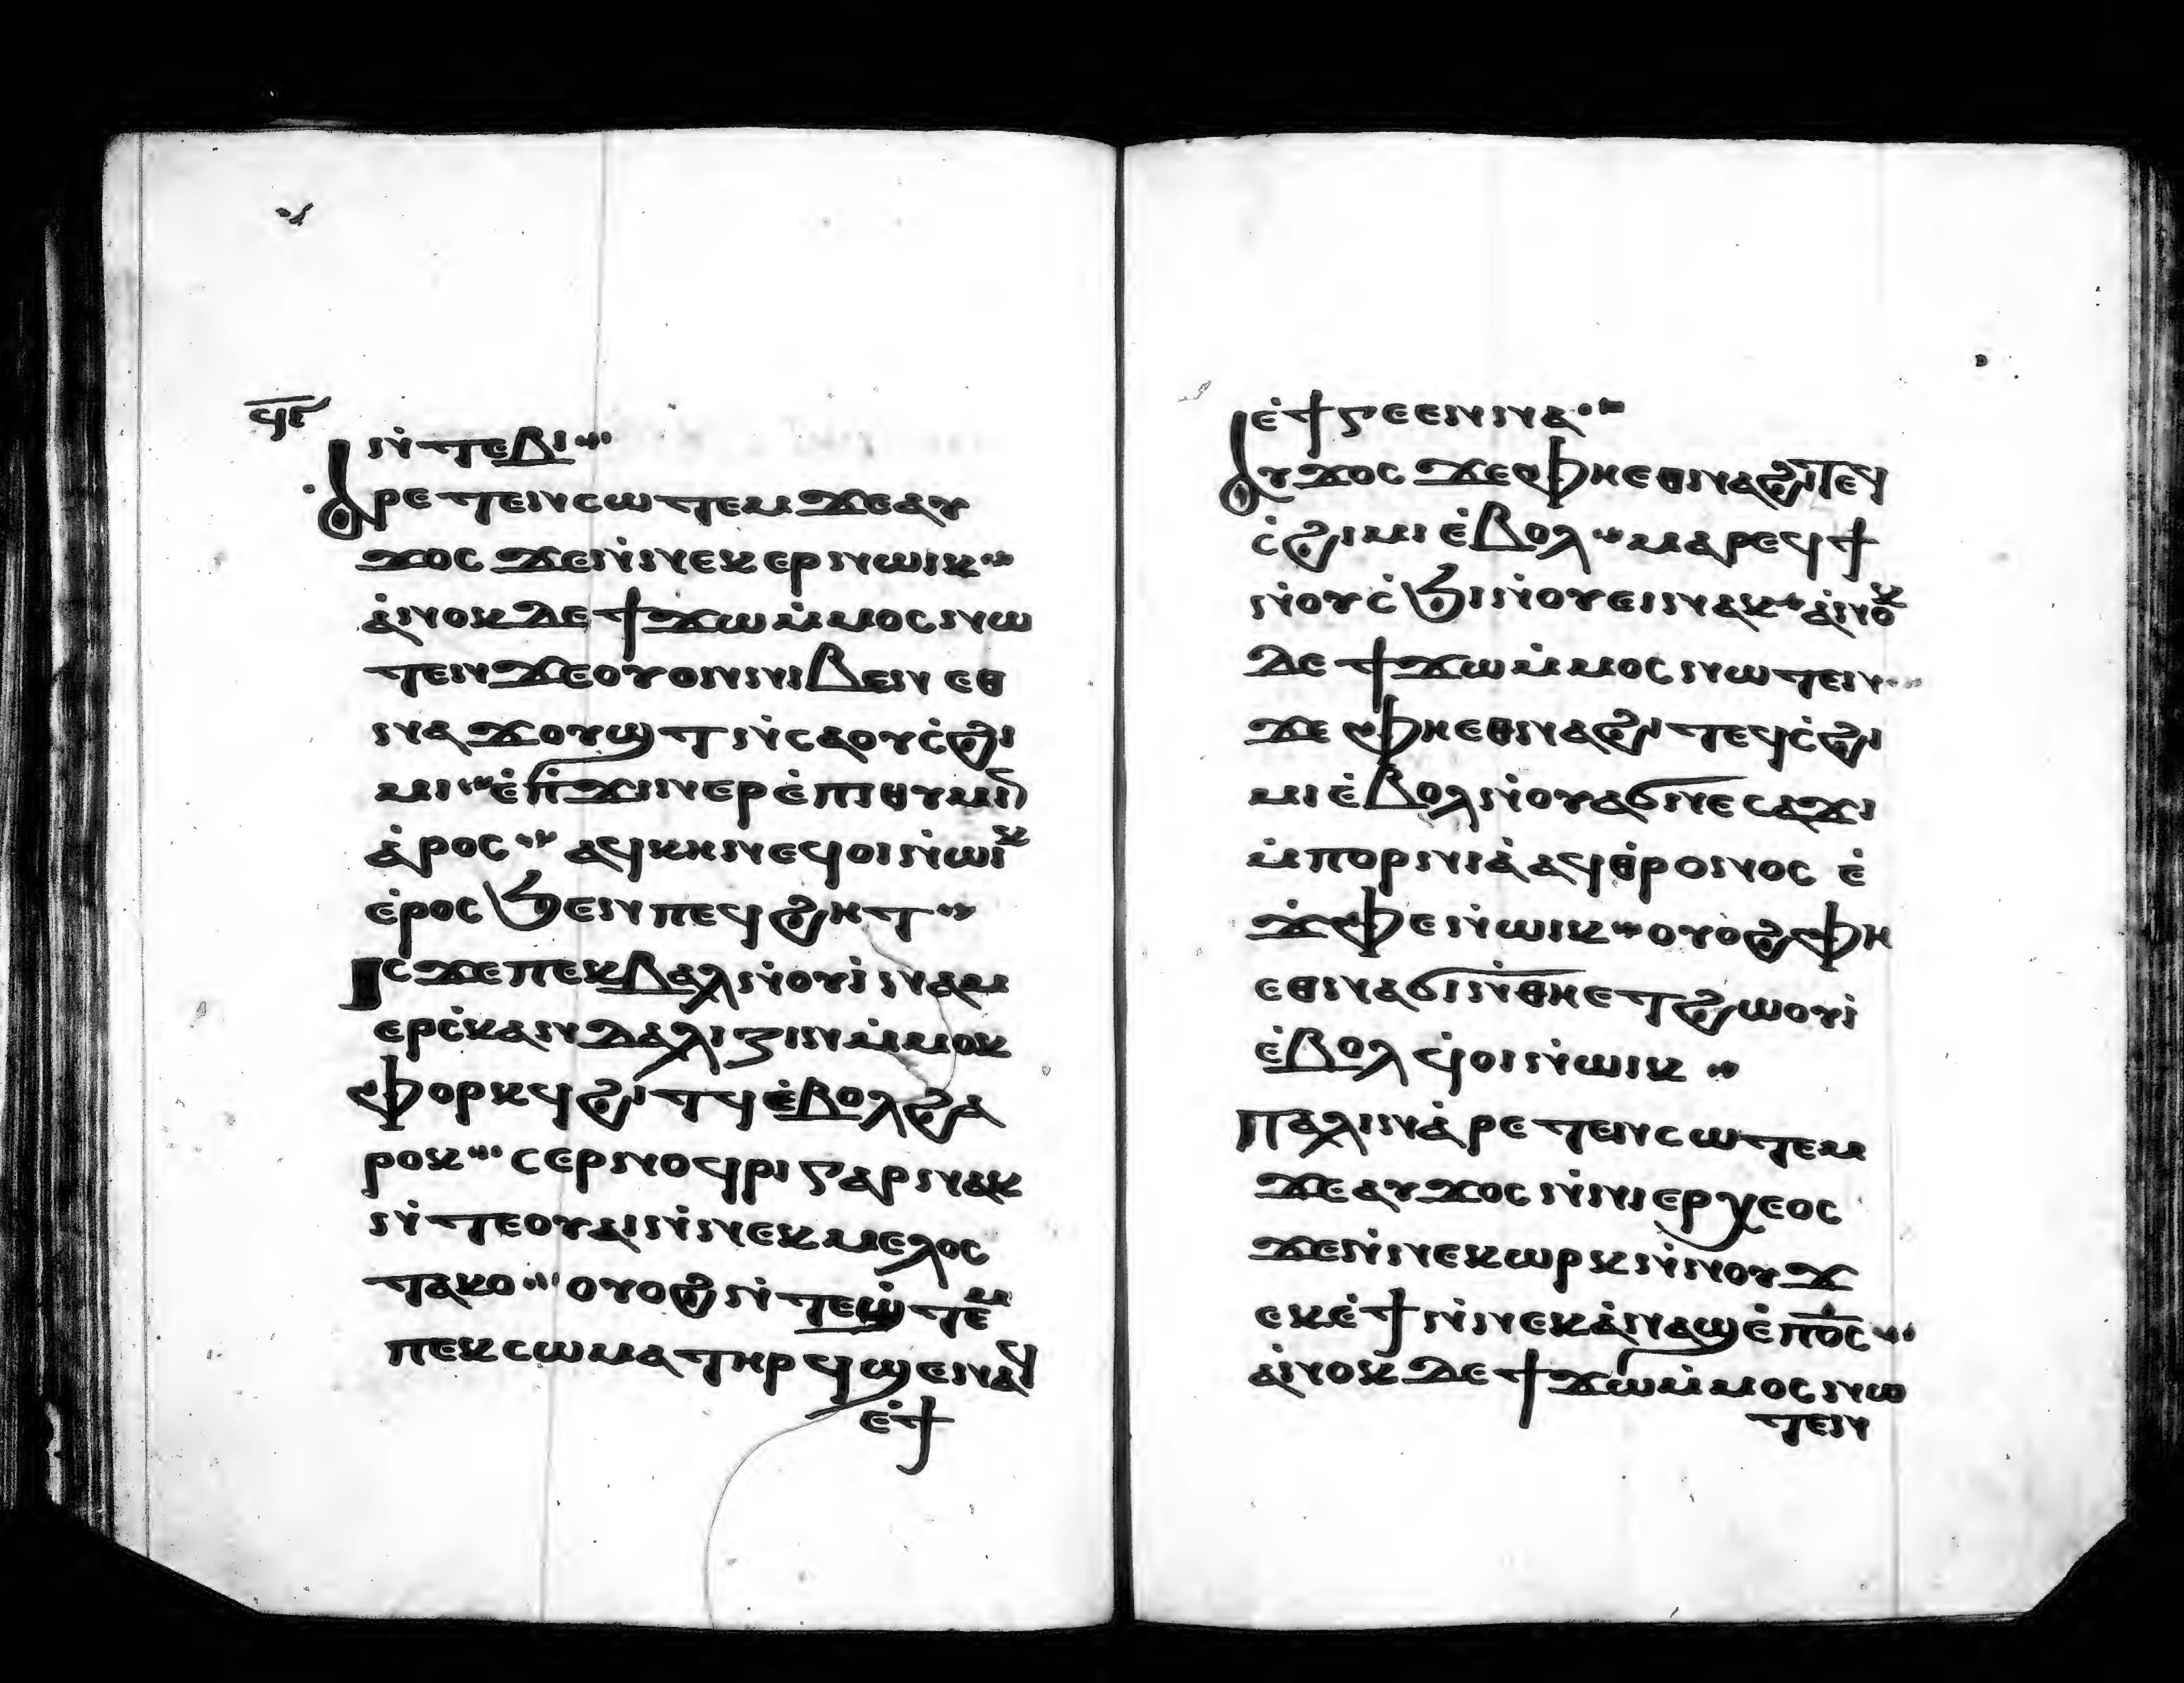 ϥⲉ
ⲛ̇ⲧⲉⲃⲓ
ⲁⲣⲉⲧⲉⲛⲥⲱⲧⲉⲙ ϫⲉⲁⲩ
ϫⲟⲥ ϫⲉⲛ̇ⲛⲉⲕⲉⲣⲛⲱⲓⲕ
ⲁ̇ⲛⲟⲕ ⲇⲉ ϯϫⲱⲙ̇ⲙⲟⲥ ⲛⲱ
ⲧⲉⲛ ϫⲉⲟⲩⲟⲛ ⲛⲓⲃⲉⲛ ⲉⲑ
ⲛⲁϫⲟⲩϣⲧ ⲛ̇ⲥⲁⲟⲩⲥ̇ϩⲓ
ⲙⲓ ⲉ̇ⲡ̇ϫⲓⲛⲉⲣⲉ̇ⲡⲓⲑⲩⲙⲓⲛ
ⲁ̇ⲣⲟⲥ ⲁϥⲕⲏⲛ ⲉϥⲟⲓ ⲛ̇ⲱⲓⲕ
ⲉ̇ⲣⲟⲥ ϧⲉⲛ ⲡⲉϥϩⲏⲧ
ⲓⲥϫⲉ ⲡⲉⲕⲃⲁⲗ ⲛ̇ⲟⲩⲓ̇ⲛⲁⲙ
ⲉⲣⲥ̇ⲕⲁⲛⲇⲁⲗⲓⲍⲓⲛ ⲙ̇ⲙⲟⲕ
ⲫⲟⲣⲕϥ ϩⲓⲧϥ ⲉ̇ⲃⲟⲗϩⲁ
ⲣⲟⲕ ⲥⲉⲣⲛⲟϥⲣⲓ ⲅⲁⲣ ⲛⲁⲕ
ⲛ̇ⲧⲉⲟⲩⲁⲓ ⲛ̇ⲛⲉⲕⲙⲉⲗⲟⲥ
ⲧⲁⲕⲟ ⲟⲩⲟϩ ⲛ̇ⲧⲉϣ̇ⲧⲉⲙ
ⲡⲉⲕⲥⲱⲙⲁ ⲧⲏⲣϥ ϣⲉⲛⲁϥ
ⲉ̇ϯ
ⲉ̇ϯⲅⲉⲉⲛⲛⲁ
ⲁⲩϫⲟⲥ ϫⲉⲫⲏⲉⲑⲛⲁϩⲓⲧⲉϥ
ⲥ̇ϩⲓⲙⲓ ⲉ̇ⲃⲟⲗ ⲙⲁⲣⲉϥϯ
ⲛ̇ⲟⲩⲥ̇ϧⲓ ⲛ̇ⲟⲩⲉⲓ ⲛⲁⲥ ⲁ̇ⲛⲟⲕ
ⲇⲉ ϯϫⲱⲙ̇ⲙⲟⲥ ⲛⲱⲧⲉⲛ
ϫⲉ ⲫⲏⲉⲑⲛⲁϩⲓ ⲧⲉϥⲥ̇ϩⲓ
ⲙⲓ ⲉ̇ⲃⲟⲗ ⲛ̇ⲟⲩⲁϭⲛⲉ ⲥⲁϫⲓ
ⲙ̇ⲡⲟⲣⲛⲓⲁ̇ ⲁϥⲑ̇ⲣⲟ ⲛⲟⲥ ⲉ̇
ϫ̇ⲫⲉ ⲛ̇ⲱⲓⲕ ⲟⲩⲟϩ ⲫⲏ
ⲉⲑⲛⲁϭⲓ ⲛ̇ⲑⲏⲉⲧϩⲱⲟⲩⲓ̇
ⲉ̇ⲃⲟⲗ ϥ̇ⲟⲓ ⲛ̇ⲱⲓⲕ
ⲡⲁⲗⲓⲛ ⲁ̇ⲣⲉⲧⲉⲛⲥⲱⲧⲉⲙ
ϫⲉⲁⲩϫⲟⲥ ⲛ̇ⲛⲓⲉⲣⲭⲉⲟⲥ
ϫⲉⲛ̇ⲛⲉⲕⲱⲣⲕ ⲛ̇ⲛⲟⲩϫ
ⲉⲕⲉ̇ϯ ⲛ̇ⲛⲉⲕⲁ̇ⲛⲁϣ ⲉ̇ⲡ̇ⲟ̅ⲥ̅
ⲁ̇ⲛⲟⲕ ⲇⲉ ϯϫⲱⲙ̇ⲙⲟⲥ ⲛⲱ
ⲧⲉⲛ